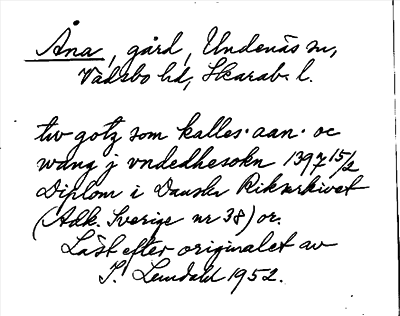 Åna, gård, Undenäs sn,
Vadsbo hd, Skarab. l.
tw gotz som kalles · aan · oc
wang j vndedhesokn 1397 15/2
Diplom i Danska Riksarkivet
(Adk. Sverige nr 38) or.
Läst efter originalet av
S. Lundahl 1952.